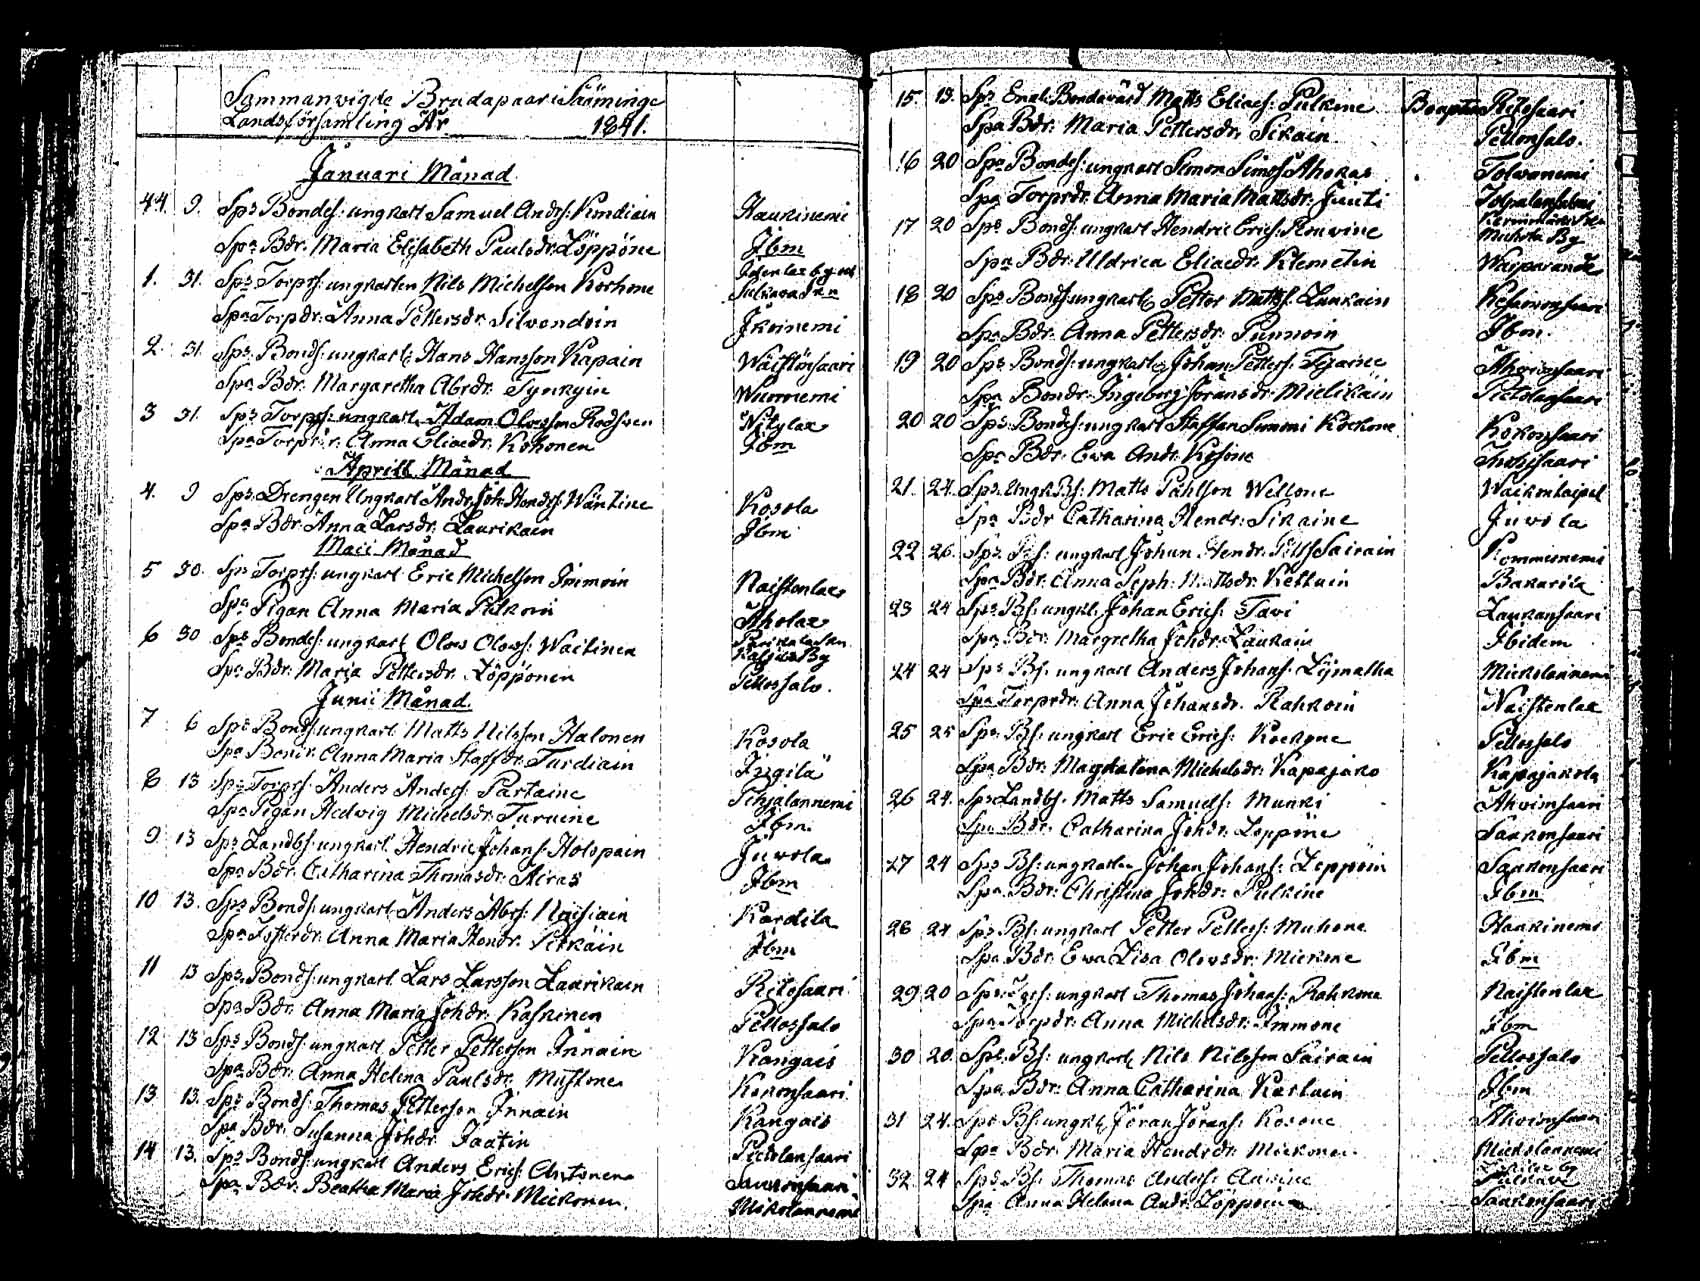 Sammanvigde Brudapaar i Sääminge
Landsförsamling År 1841.
Januari Månad
44. 9. Sps Bondes: ungkarl Samuel Andrs: Kindiain Haukinemi
Spa Bdr. Maria Elisabeth Paulsdr. Löppöne Ibm
1. 31. Sps Torprs: ungkarlen Nils Michelsson Korhone Sulkava Skn
Spa Torpdr. Anna Pettersdr. Silvendoin Ikoinemi
2. 31. Sps. Bonds: ungkarl Hans Hansson Kapain Wäistönsaari
Spa. Bdr. Margaretha Abrdr. Tynkyin Wuorinemi
3 31. Sps Torprs: ungkarl. Adam Olovsson Rodsven Nitylax
Spa Torprdr. Anna Eliaedr. Kokonen Ibm
Aprill Månad
4. 9 Sps. Drengen Ungkarl Andr. Joh. Hendrs. Wäntine Kosola
Spa Bdr. Anna Larsdr. Laurikain Ibm
Maii Månad
5 30. Sps Torprs: ungkarl. Eric Michelsson Immoin Naistenlax
Spa Pigan Anna Maria Pulkoin Aholax
6 30 Sps Bondes: ungkarl Olovs: Waitinen By
Spa. Bdr: Maria Pettersdr. Löppönen Pellossalo.
Junii Månad.
7 6 Sps Bonds: ungkarl. Matts Nilsson Halonen Kosola
Spa Anna Maria Staffdr. Turdiain Ingilä
8 13 Sps Torprs: Anders Anders: Partaine Pihjalannemi
Spa Pigan Hedvig Michelsdr. Turuine Ibm.
9 13 Sps Landbs: ungkarl. Hendric Johans: Holopain Juvola
Spa Bdr. Catharina Thomasdr. Airas Ibm
10 13. Sps Bonds: ungkarl. Anders Abrs: Naisiain Kardila
Spa Fosterdr. Anna Maria Hendr. Petkäin Ibm
11 13 Sps. Bonds: ungkarl. Lars Larsson Laurikain Ritosaari
Spa Bdr. Anna Maria Johdr. Kaskinen Pellossalo
12 13 Sps Bonds: ungkarl Petter Petterson Innain Kangais
Spa Bdr. Anna Helena Paulsdr. Mustone Kokonsaari
13. 13. Sps Bonds: Thomas Petterson Innain Kangais
Spa Bdr. Susanna Johdr. Jäätin Pietolansaari
14 13. Sps Bonds: ungkarl Anders Erics: Antonen
Spa Bdr. Beatha Maria Johdr. Mickonen. Mikolannemi
15. 13. Sps Enkl. Matts Elias: Pulkine Ritosaari
Spa Bdr. Maria Pettersdr. Sikain Pellossalo.
16 20 Sps Bondes: ungkarl Simon Simos: Ahokas Tolvanemi
Spa Torprdr. Anna Maria Mattsdr. Juuti
17 20 Sps Bonds: ungkarl Hendric Erics: Rouvine By
Spa Bdr. Uldrica Eliaedr. Klemetin Warparanda
18 20 Sps Bonds: ungkarl Petter Matts: Laukain Kesamonsaari
Spa Bdr. Anna Pettersdr. Punnoin Ibm.
19 20 Sps Bonds: ungkarl Johan Petters: Ahvionsaari
Spa Bondr. Ingeborg Joransdr. Mielikäin Pietolansaari
20 20 Sps Bonds: ungkarl Staffan Kockone Kokonsaari
Spa Bdr. Ewa Andr. Kosone
21. 24. Sps. Ungk. Bs: Matts Påhlsson Wellone
Spa Bdr Catharina Hendr: Sikaine Juvola
22 26. Sps Ts: ungkarl Johan Hendr. Sairain Kommernemi
Spa Bdr. Anna Soph: Mattsdr. Kettuin Bakarila
23 24 Sps Bs: ungkl. Johan Erics: Tavi Laukansaari
Spa Bdr. Margretha Johdr. Laukain Ibidem
24 24 Sps Bs: ungkarl Anders Johans: Lÿjmatka Mickolannemi
Spa Torprdr. Anna Johansdr. Rahkoin Naistenlax
25 25 Sps. Bs: ungkarl Eric Erics: Kockone Pellossalo
Spa Bdr. Magdalena Michelsdr. Kapajako Kapajakola
26 24. Sps Landbs. Matts Samuels: Munki Ahvionsaari
Spa Bdr. Catharina Johdr. Loppöne Saukonsaari
27 24 Sps Bs: ungkarlen Johan Johans: Loppoin Saukonsaari
Spa. Bdr. Christina Johdr. Pulkine Ibm
28 24 Sps Bs: ungkarl Petter Petters: Muhone Haukinemi
Spa Bdr. Ewa Lisa Olovsdr. Mickone Ibm
29 20 Sps Ts: ungkarl Thomas Johans: Rahkone Naistenlax
Spa Torpdr. Anna Michelsdr. Immone Ibm
30 20. Sps. Bs: ungkarl Nils Nilsson Sairain Pellossalo
Spa. Bdr. Anna Catharina Karlain Ibm
31 24. Sps Bs: ungkl Jöran Jörans: Kosone Ahvionsaari
Spa Bdr. Maria Hendrdr. Mickonen Mickolannemi
32 24 Sps Bs: Thomas Andrs: Auvine
Spa Anna Helena Andr. Löppoin Saukonsaari